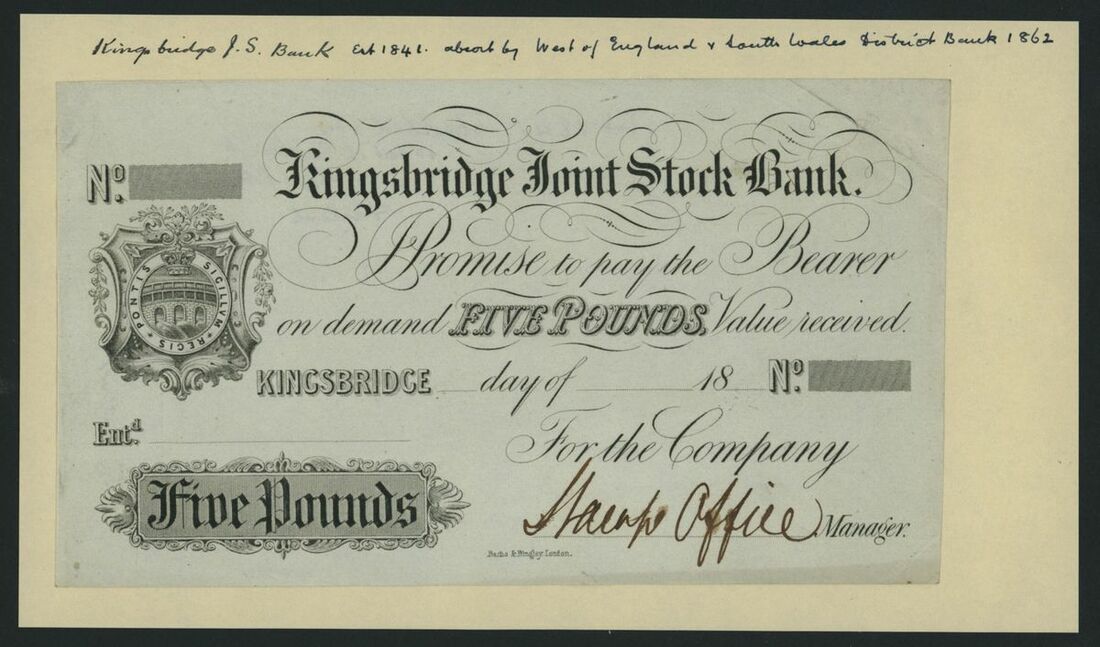 Kingsbridge J.S. Bank Est 1841. absort by West of England & South Wales District Bank 1862
No.
Kingsbridge Joint Stock Bank.
PONTIS SIGILLVM REGIS
I Promise to pay the Bearer
on demand FIVE POUNDS, Value received.
KINGSBRIDGE day of 18 No.
Entd.
For the Company
Five Pounds
Stamp Office Manager.
& Bingley London.